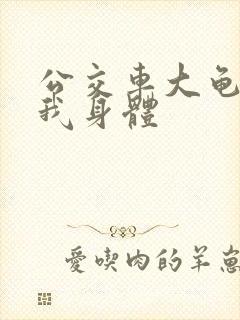 公交車大龟
我身體
愛喫肉的羊崽